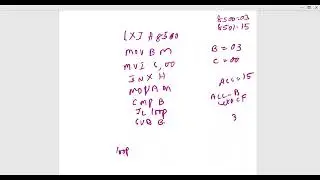 LXI H 8500
MOV B M
MVI C,00
INX H
MOV A M
CMP B
JC loop
SUB B
loop
8500-03
8501-15
B = 03
C = 00
ACC=15
ACC-B
3